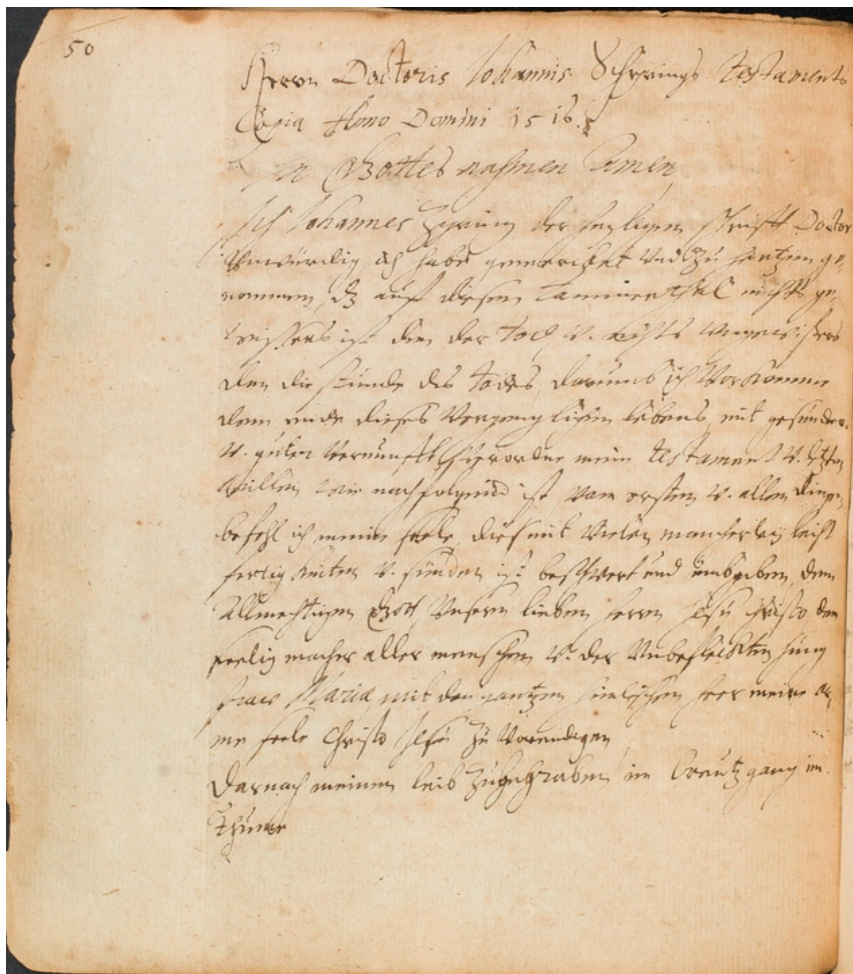 50
Herrn Doctoris Johannis Schyrings Testaments
Copia Anno Domini 1516.
In Gottes nahmen Amen
Ich Johannes Zyring der heyligen schrifft Doctor
Unwürdig ich habe gemercket Und zu hertzen ge,
nommen, dz auf diesem Jammerthal nichts ge,
wissers ist den der Tod v. nichts Ungewissers
den die stunde des Todes, darumb ich Vorkomme
dem ende dieses Vergenglichen lebens mit gesunder
v. guter Vernunfft Verordne mein Testament v. letzten
willen wie nachfolgend ist Vom ersten v. allen dingen
befehl ich meine seele, die mit Vielen mancherley leicht
fertigkeiten v. sünden ist beschwert und umbgeben dem
Allmechtigen Gott, Unserm lieben herrn Jesu Christo, dem
seeligmacher aller menschen v. der Unbefleckten Jung
fraw Maria mit dem gantzen himlischen heer meine ar,
me seele Christo Jesu zu
Darnach meinen leib zu begraben im Creutzgang im
Thume